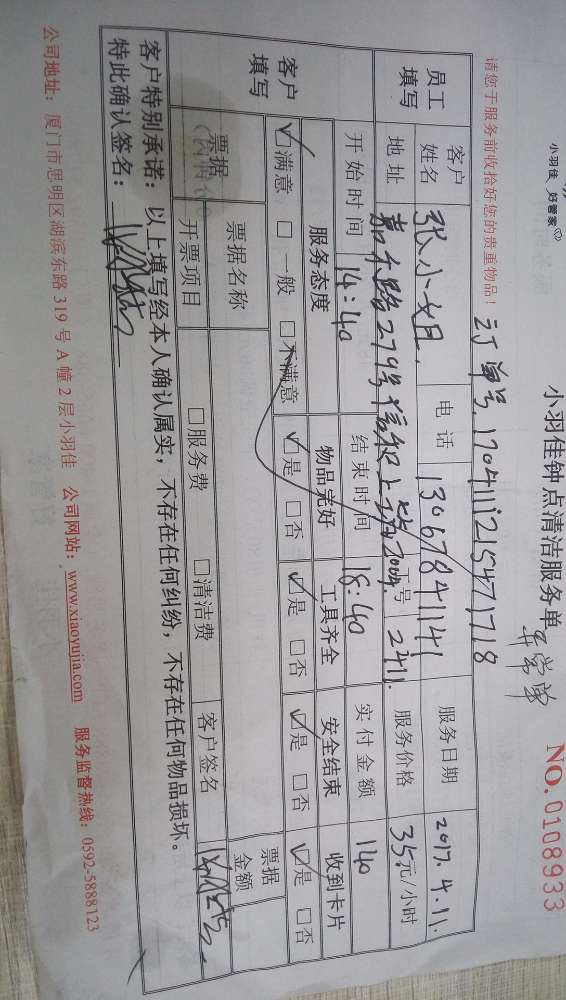 小羽佳 好管家
小羽佳钟点清洁服务单
NO.0108933
异常单
订单号.1704111215471718
请您于服务前收拾好您的贵重物品!
员工填写 客户姓名 张小姐. 电话 13067841141 服务日期 2017.4.11.
地址 嘉禾路279号 工号 2411. 服务价格 35元/小时
开始时间 14:40 结束时间 18:40 实付金额 140
客户填写 服务态度 物品完好 工具齐全 安全结束 收到卡片
☑满意 □一般 □不满意 ☑是 □否 ☑是 □否 ☑是 □否 ☑是 □否
票据 票据名称 客户签名 票据金额
开票项目 □服务费 □清洁费
客户特别承诺:以上填写经本人确认属实,不存在任何纠纷,不存在任何物品损坏。
特此确认签名:
公司地址:厦门市思明区湖滨东路319号A幢2层小羽佳 公司网站:www.xiaoyujia.com 服务监督热线:0592-5888123